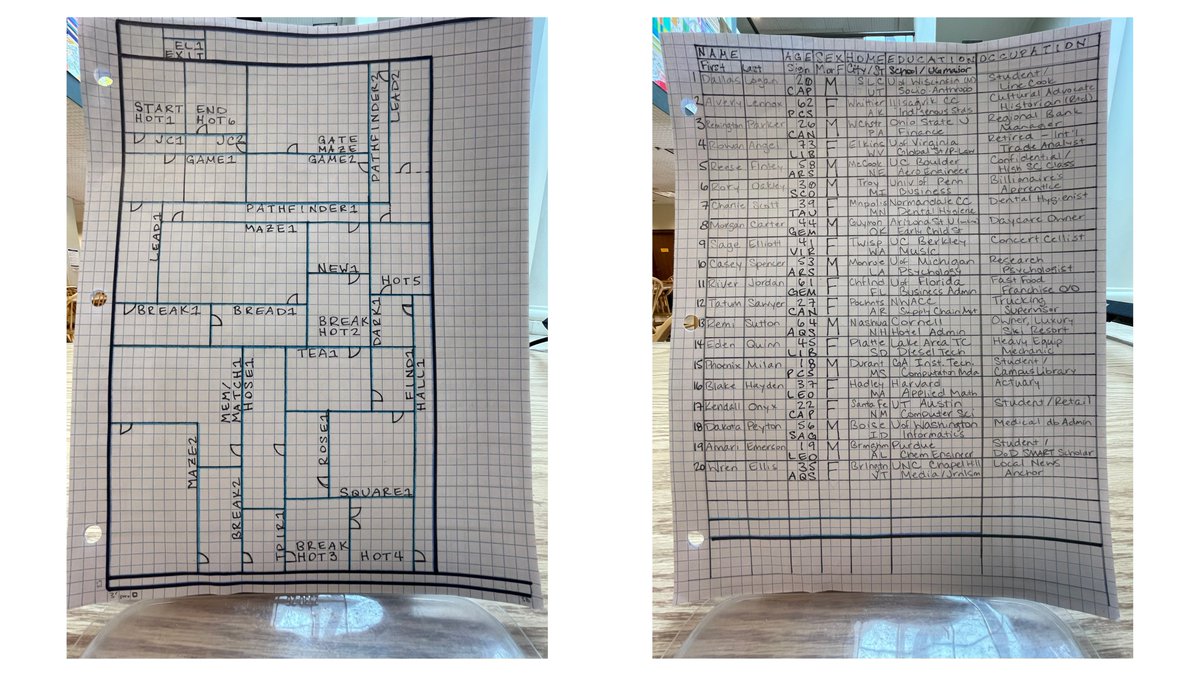 EL1
EXIT
START
HOT1
END
HOT6
JC1
JC2
GATE
MAZE
GAME1
GAME2
PATHFINDER2
LEAD2
PATHFINDER1
LEAD1
MAZE1
NEW1
HOT5
BREAK1
BREAD1
BREAK
HOT2
DARK1
TEA1
FIND1
HALL1
MEM/
MATCH1
HOSE1
MAZE2
ROSE1
SQUARE1
BREAK2
TPIR1
BREAK
HOT3
HOT4
NAME AGE SEX HOME EDUCATION OCCUPATION
First Last Sign M or F City/St School/
1 Dallas Logan 20 M SLC U of Wisconsin Student/
CAP UT Socio-Anthrop Line Cook
2 Avery Lennox 62 F Whittier Ilisagvik CC Cultural Advocate
PCS AK Indigenous Stds Historian (Rtd)
3 Remington Parker 26 M WChstr Ohio State U Regional Bank
CAN PA Finance Manager
4 Rowan Angel 73 F Elkins U of Virginia Retired - Int'l
LIB WV Global St/P-Law Trade Analyst
5 Reese Finley 58 M McCook UC Boulder Confidential/
ARS NE Aero Engineer High SC Class
6 Rory Oakley 30 M Troy Univ of Penn Billionaire's
SCO MI Business Apprentice
7 Charlie Scott 39 F Mnpolis Normandale CC Dental Hygienist
TAU MN Dental Hygiene
8 Morgan Carter 44 M Guymon Arizona St U Daycare Owner
GEM OK Early Child St
9 Sage Elliott 41 F Twisp UC Berkley Concert Cellist
VIR WA Music
10 Casey Spencer 53 M Monroe U of Michigan Research
ARS LA Psychology Psychologist
11 River Jordan 61 F Chflnd U of Florida Fast Food
GEM FL Business Admin Franchise O/O
12 Tatum Sawyer 27 F Pochnts NWACC Trucking
CAN AR Supply Chain Mgt Supervisor
13 Remi Sutton 64 M Nashua Cornell Owner, Luxury
AQS NH Hotel Admin Ski Resort
14 Eden Quinn 45 F Platte Lake Area TC Heavy Equip
LIB SD Diesel Tech Mechanic
15 Phoenix Milan 18 M Durant GA Inst. Tech. Student/
PCS MS Computation Campus Library
16 Blake Hayden 37 F Hadley Harvard Actuary
LEO MA Applied Math
17 Kendall Onyx 22 F Santa Fe UT Austin Student/Retail
CAP NM Computer Sci
18 Dakota Peyton 56 M Boise U of Washington Medical db Admin
SAG ID Informatics
19 Amari Emerson 19 M Brmnghm Purdue Student/
LEO AL Chem Engineer DoD SMART Scholar
20 Wren Ellis 35 F Brlngtn UNC Chapel Hill Local News
AQS VT Media/Jrnlsm Anchor